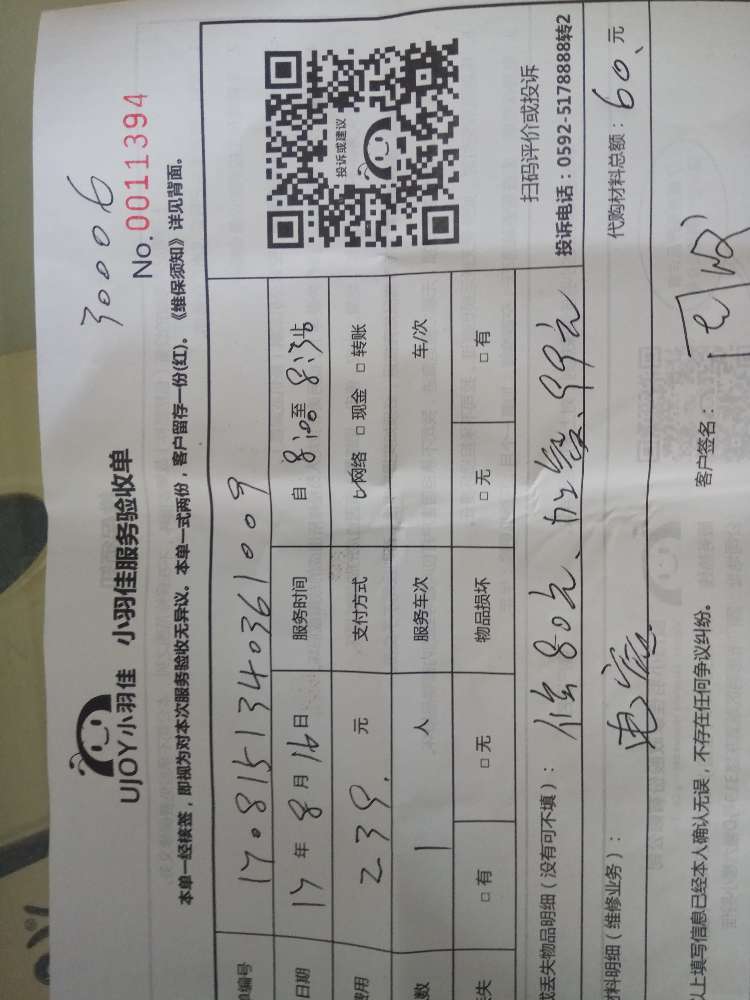 30006
UJOY小羽佳 小羽佳服务验收单
No.0011394
本单一经核签，即视为对本次服务验收无异议。本单一式两份，客户留存一份(红)。《维保须知》详见背面。
编号 1708151340361009
日期 17年8月16日 服务时间 自8:00至8:35止
费用 239. 元 支付方式 网络 □现金 □转账
数 1 人 服务车次 车/次
失 □有 □无 物品损坏 □无 □有
投诉或建议
扫码评价或投诉
投诉电话：0592-5178888转2
或丢失物品明细（没有可不填）： 修80元、加氨、99元
材料明细（维修业务）： 电容 代购材料总额：60、元
以上填写信息已经本人确认无误，不存在任何争议纠纷。 客户签名：